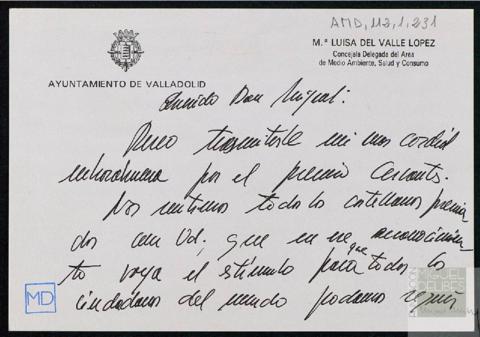 AMD, 112, 1, 231
Mª LUISA DEL VALLE LOPEZ
Concejala Delegada del Area
de Medio Ambiente, Salud y Consumo
AYUNTAMIENTO DE VALLADOLID
Querido Don Miguel:
Deseo trasmitirle mi mas cordial
enhorabuena por el premio Cervantes.
Nos sentimos todos los castellanos premia-
dos con Vd., que en ese reconocimien-
to vaya el estímulo para que todos los
ciudadanos del mundo podamos seguir
MD
MIGUEL
DELIBES